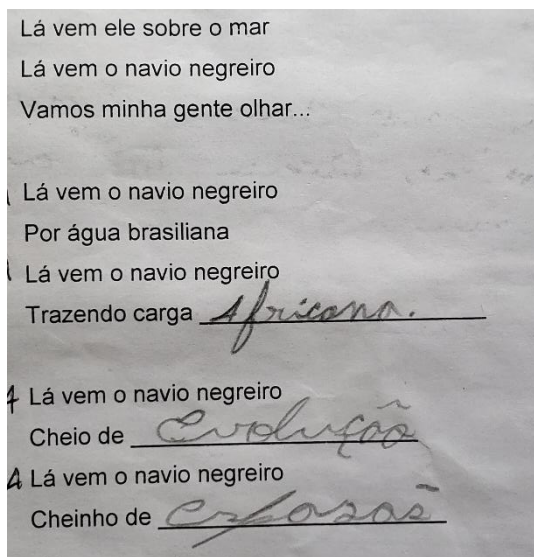 Lá vem ele sobre o mar
Lá vem o navio negreiro
Vamos minha gente olhar...
Lá vem o navio negreiro
Por água brasiliana
Lá vem o navio negreiro
Trazendo carga Africana.
A Lá vem o navio negreiro
Cheio de Evolução
A Lá vem o navio negreiro
Cheinho de